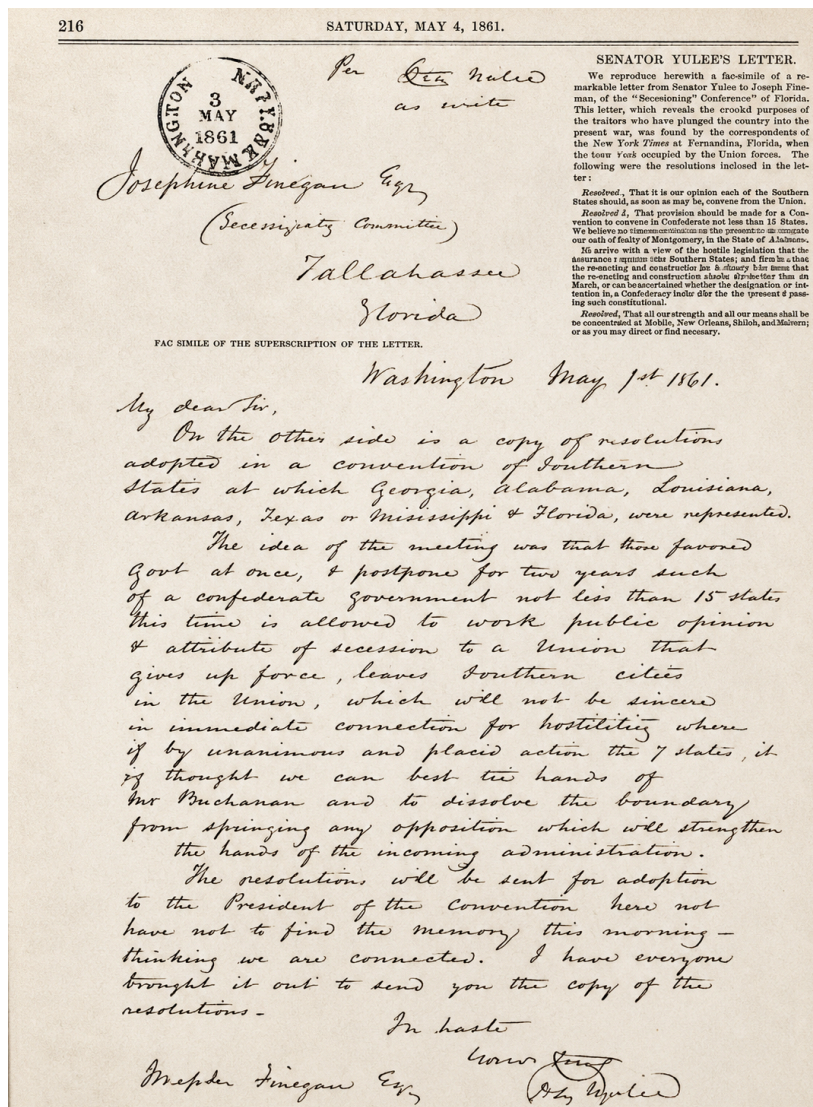 216
SATURDAY, MAY 4, 1861.
3
MAY
1861
Per Yulee
as write
Josephine Finegan Esqr
(Committee)
Tallahassee
Florida
FAC SIMILE OF THE SUPERSCRIPTION OF THE LETTER.
SENATOR YULEE'S LETTER.
We reproduce herewith a fac-simile of a re-
markable letter from Senator Yulee to Joseph Fine-
man, of the “Secesioning” Conference” of Florida.
This letter, which reveals the crookd purposes of
the traitors who have plunged the country into the
present war, was found by the correspondents of
the New York Times at Fernandina, Florida, when
the occupied by the Union forces. The
following were the resolutions inclosed in the let-
ter:
Resolved., That it is our opinion each of the Southern
States should, as soon as may be, convene from the Union.
Resolved, That provision should be made for a Con-
vention to convene in Confederate not less than 15 States.
We believe no the
our oath of fealty of Montgomery, in the State of
arrive with a view of the hostile legislation that the
assurance Southern States; and that
the re-encting and construction that
the re-encting and construction
March, or can be ascertained whether the designation or int-
tention in, a Confederacy the the present & pass-
ing such constitutional.
Resolved, That all our strength and all our means shall be
be concentrated at Mobile, New Orleans, Shiloh, and Malvern;
or as you may direct or find necesary.
Washington May 1st 1861.
My dear Sir,
On the other side is a copy of resolutions
adopted in a convention of Southern
States at which Georgia, Alabama, Louisiana,
Arkansas, Texas or Misissippi & Florida, were represented.
The idea of the meeting was that those favored
Govt at once, & postpone for two years such
of a confederate government not less than 15 states
this time is allowed to work public opinion
& attribute of secession to a Union that
gives up force, leaves Southern cities
in the Union, which will not be sincere
in immediate connection for hostilities where
if by unanimous and placid action the 7 states, it
is thought we can best tie hands of
Mr Buchanan and to dissolve the boundary
from springing any opposition which will strengthen
the hands of the incoming administration.
The resolutions will be sent for adoption
to the President of the Convention here not
have not to find the memory this morning—
thinking we are connected. I have everyone
brought it out to send you the copy of the
resolutions-
In haste
Yours
Yulee
Finegan Esq